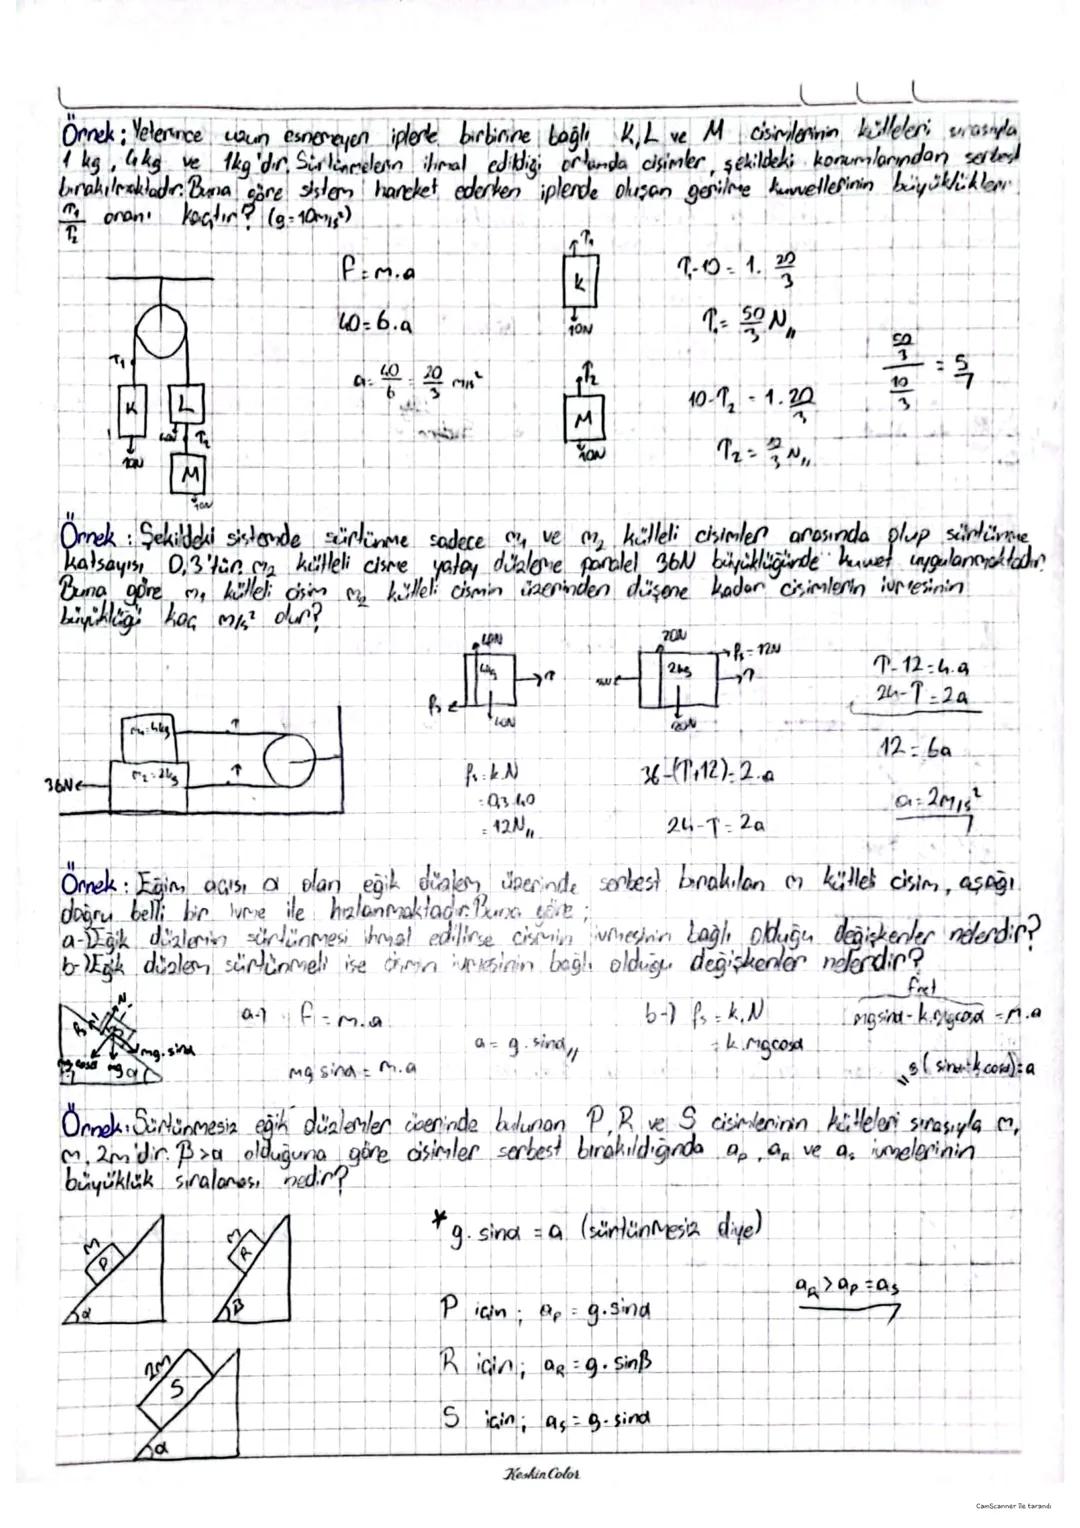 Örnek: Yeterince uzun esnemeyen iplerle birbirine bağlı K, L ve M cisimlerinin kütleleri sırasıyla
1 kg, 4kg ve 1kg'dır. Sürtünmelerin ihmal edildiği ortamda cisimler, şekildeki konumlarından serbest
bırakılmaktadır. Buna göre sistem hareket ederken iplerde oluşan gerilme kuvvetlerinin büyüklükleri
T₁/T₂ oranı kaçtır? (g=10m/s²)
F=m.a
40=6.a
a= 40/6 = 20/3 m/s²
T₁
K
10N
T₁-10 = 1. 20/3
T₁= 50/3 N,,
T₂
M
10N
10-T₂ = 1. 20/3
T₂= 10/3 N,,
50/3 / 10/3 = 5/7
T₁
K
L
10N
40N
T₂
M
10N
Örnek: Şekildeki sistemde sürtünme sadece m₁ ve m₂ kütleli cisimler arasında olup sürtünme
katsayısı 0,3'tür. m₂ kütleli cisme yatay düzleme paralel 36N büyüklüğünde kuvvet uygulanmaktadır.
Buna göre m₁ kütleli cisim m₂ kütleli cismin üzerinden düşene kadar cisimlerin ivmesinin
büyüklüğü kaç m/s² olur?
40N
4kg
T
fs
40N
20N
fs=12N
2kg
T
36N
20N
T-12=4.a
24-T=2a
12=6a
a=2m/s²
m₁=4kg
T
m₂=2kg
T
36N
fs=k.N
=0,3.40
=12N,,
36-(T+12)=2.a
24-T=2a
Örnek: Eğim açısı α olan eğik düzlem üzerinde serbest bırakılan m kütleli cisim, aşağı
doğru belli bir ivme ile hızlanmaktadır. Buna göre;
a-)Eğik düzlemin sürtünmesi ihmal edilirse cismin ivmesinin bağlı olduğu değişkenler nelerdir?
b-)Eğik düzlem sürtünmeli ise cismin ivmesinin bağlı olduğu değişkenler nelerdir?
N
fs
mg.sinα
mg cosα
mg
α
a-) F=m.a
mg sinα = m.a
a= g.sinα,,
b-) fs=k.N
=k.mgcosα
fnet
mgsinα-k.mgcosα = m.a
,,g(sinα-kcosα)=a
Örnek: Sürtünmesiz eğik düzlemler üzerinde bulunan P, R ve S cisimlerinin kütleleri sırasıyla m,
m, 2m'dir. β>α olduğuna göre cisimler serbest bırakıldığında aₚ, aR ve aₛ ivmelerinin
büyüklük sıralaması nedir?
m
P
α
m
R
β
2m
S
α
* g.sinα = a (sürtünmesiz diye)
P için; aₚ = g.sinα
R için; aR = g.sinβ
S için; aₛ = g.sinα
aR > aₚ = aₛ
KeskinColor
CamScanner ile tarandı